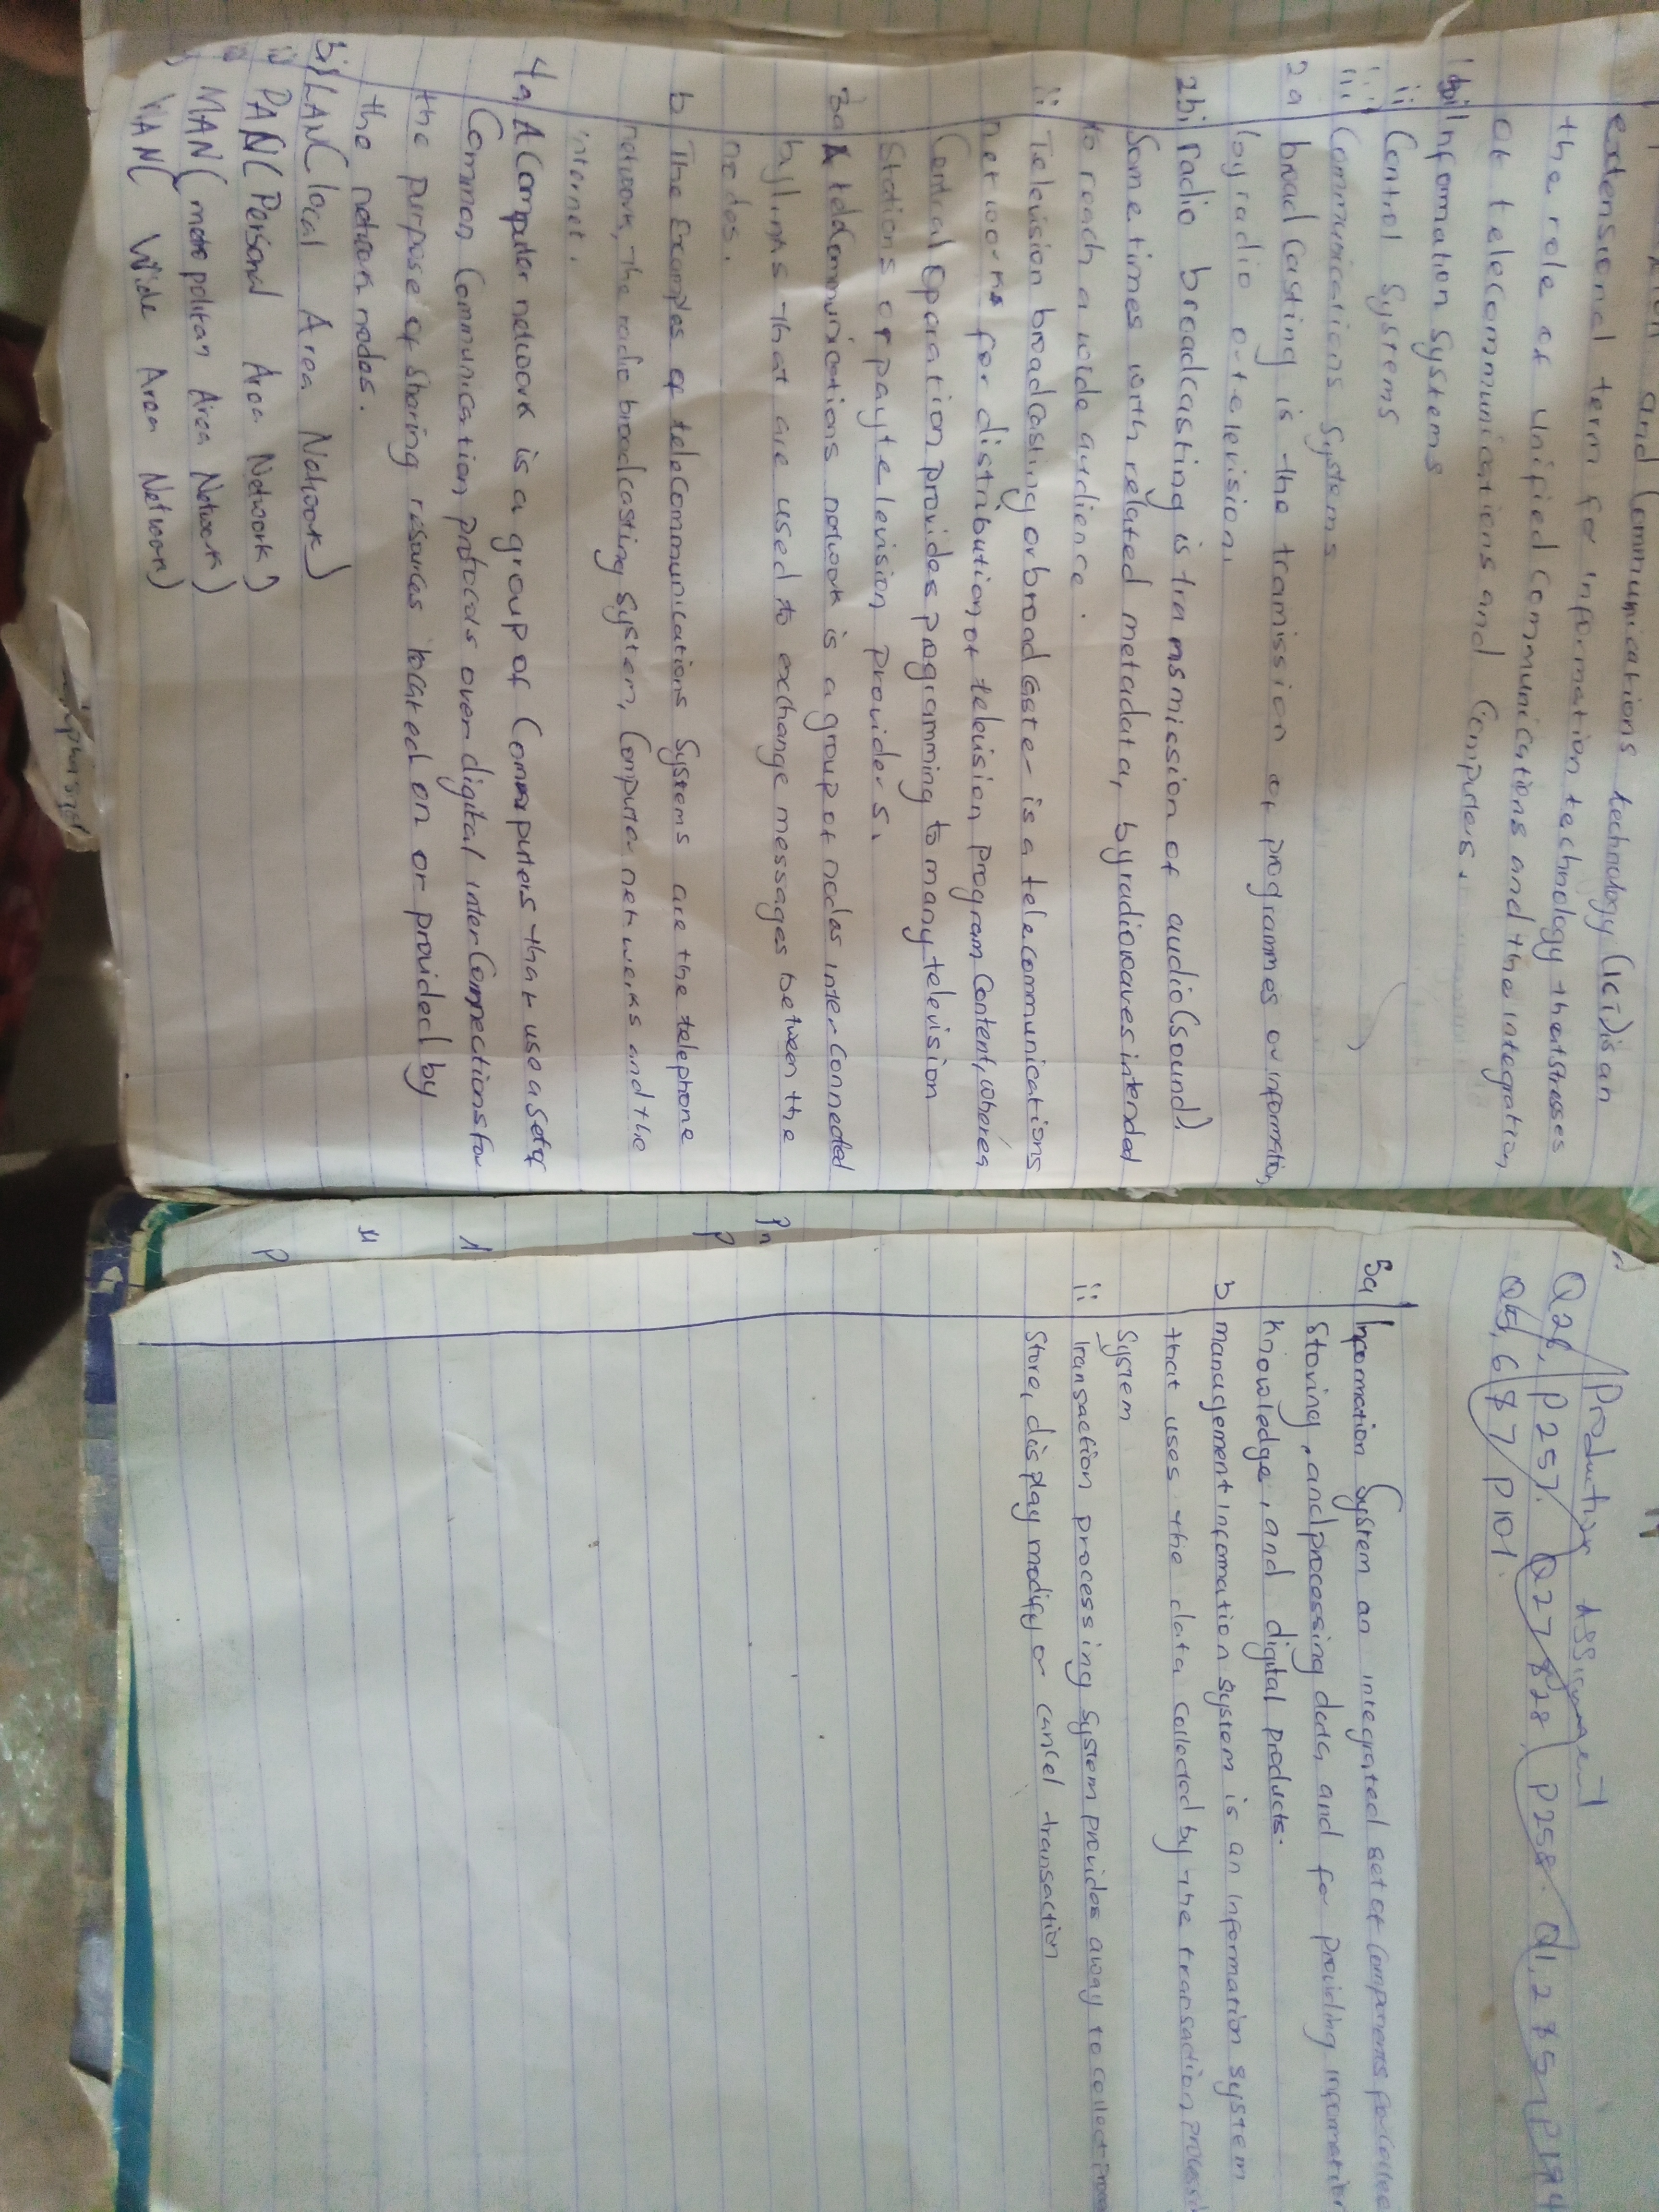 and Communications technology (ICT) is an
extensional term for information technology that stresses
the role of unified communications and the integration
of telecommunications and Computers.
1bi Information Systems
ii Control Systems
iii Communications Systems
2a broadcasting is the tramission of programmes or information
by radio or television.
2bi radio broadcasting is transmission of audio (sound)
Sometimes with related metadata, by radio waves intended
to reach a wide audience.
ii Television broadcasting or broadcaster is a telecommunications
networks for distribution of television program Content, where a
Central Oparation provides programming to many television
Stations or pay television providers.
3a A telecommunications network is a group of nodes interconnected
by links that are used to exchange messages between the
nodes.
b The Examples of telecommunications Systems are the telephone
network, the radio broadcasting system, Computer networks and the
internet.
4a A Computer network is a group of Computers that use a set of
Common Communication protocols over digital interconnections for
the purpose of sharing resources located on or provided by
the network nodes.
bi LAN (local Area Network)
ii PAN (Personal Area Network)
MAN (metropolitan Area Network)
WAN (Wide Area Network)
Production Assignment
Q26, P257. Q27 & 28, P258. Q1, 2 & 5, P194
Q5, 6 & 7, P101.
5a Information System an integrated set of components for
Storing, and processing data and for providing information
Knowledge, and digital products.
b management information system is an information system
that uses the data collected by the transaction
System
ii Transaction processing system provides away to collect
Store, display modify or cancel transaction